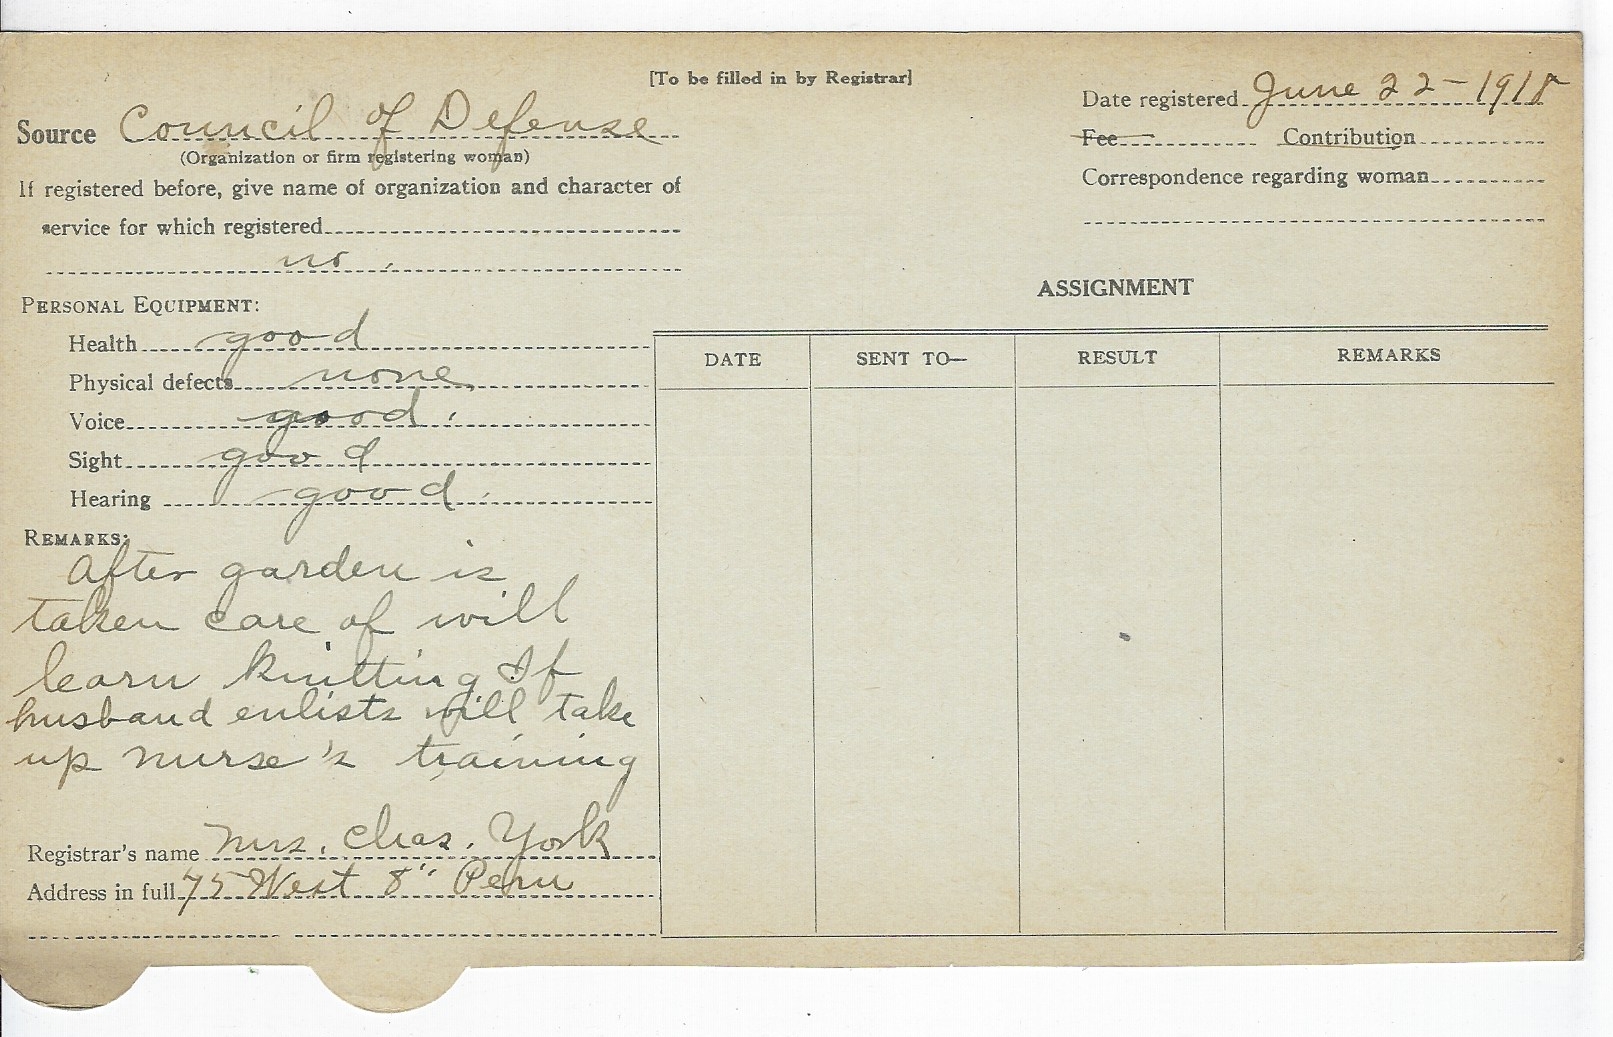 [To be filled in by Registrar]
Source Council of Defense
(Organization or firm registering woman)
If registered before, give name of organization and character of
service for which registered
no.
Date registered June 22-1918
Fee Contribution
Correspondence regarding woman
PERSONAL EQUIPMENT:
Health good
Physical defects none
Voice good.
Sight good
Hearing good.
REMARKS:
After garden is
taken care of will
learn knitting If
husband enlists will take
up nurse's training
Registrar's name Mrs. Chas. York
Address in full 75 West 8" Peru
ASSIGNMENT
DATE SENT TO— RESULT REMARKS